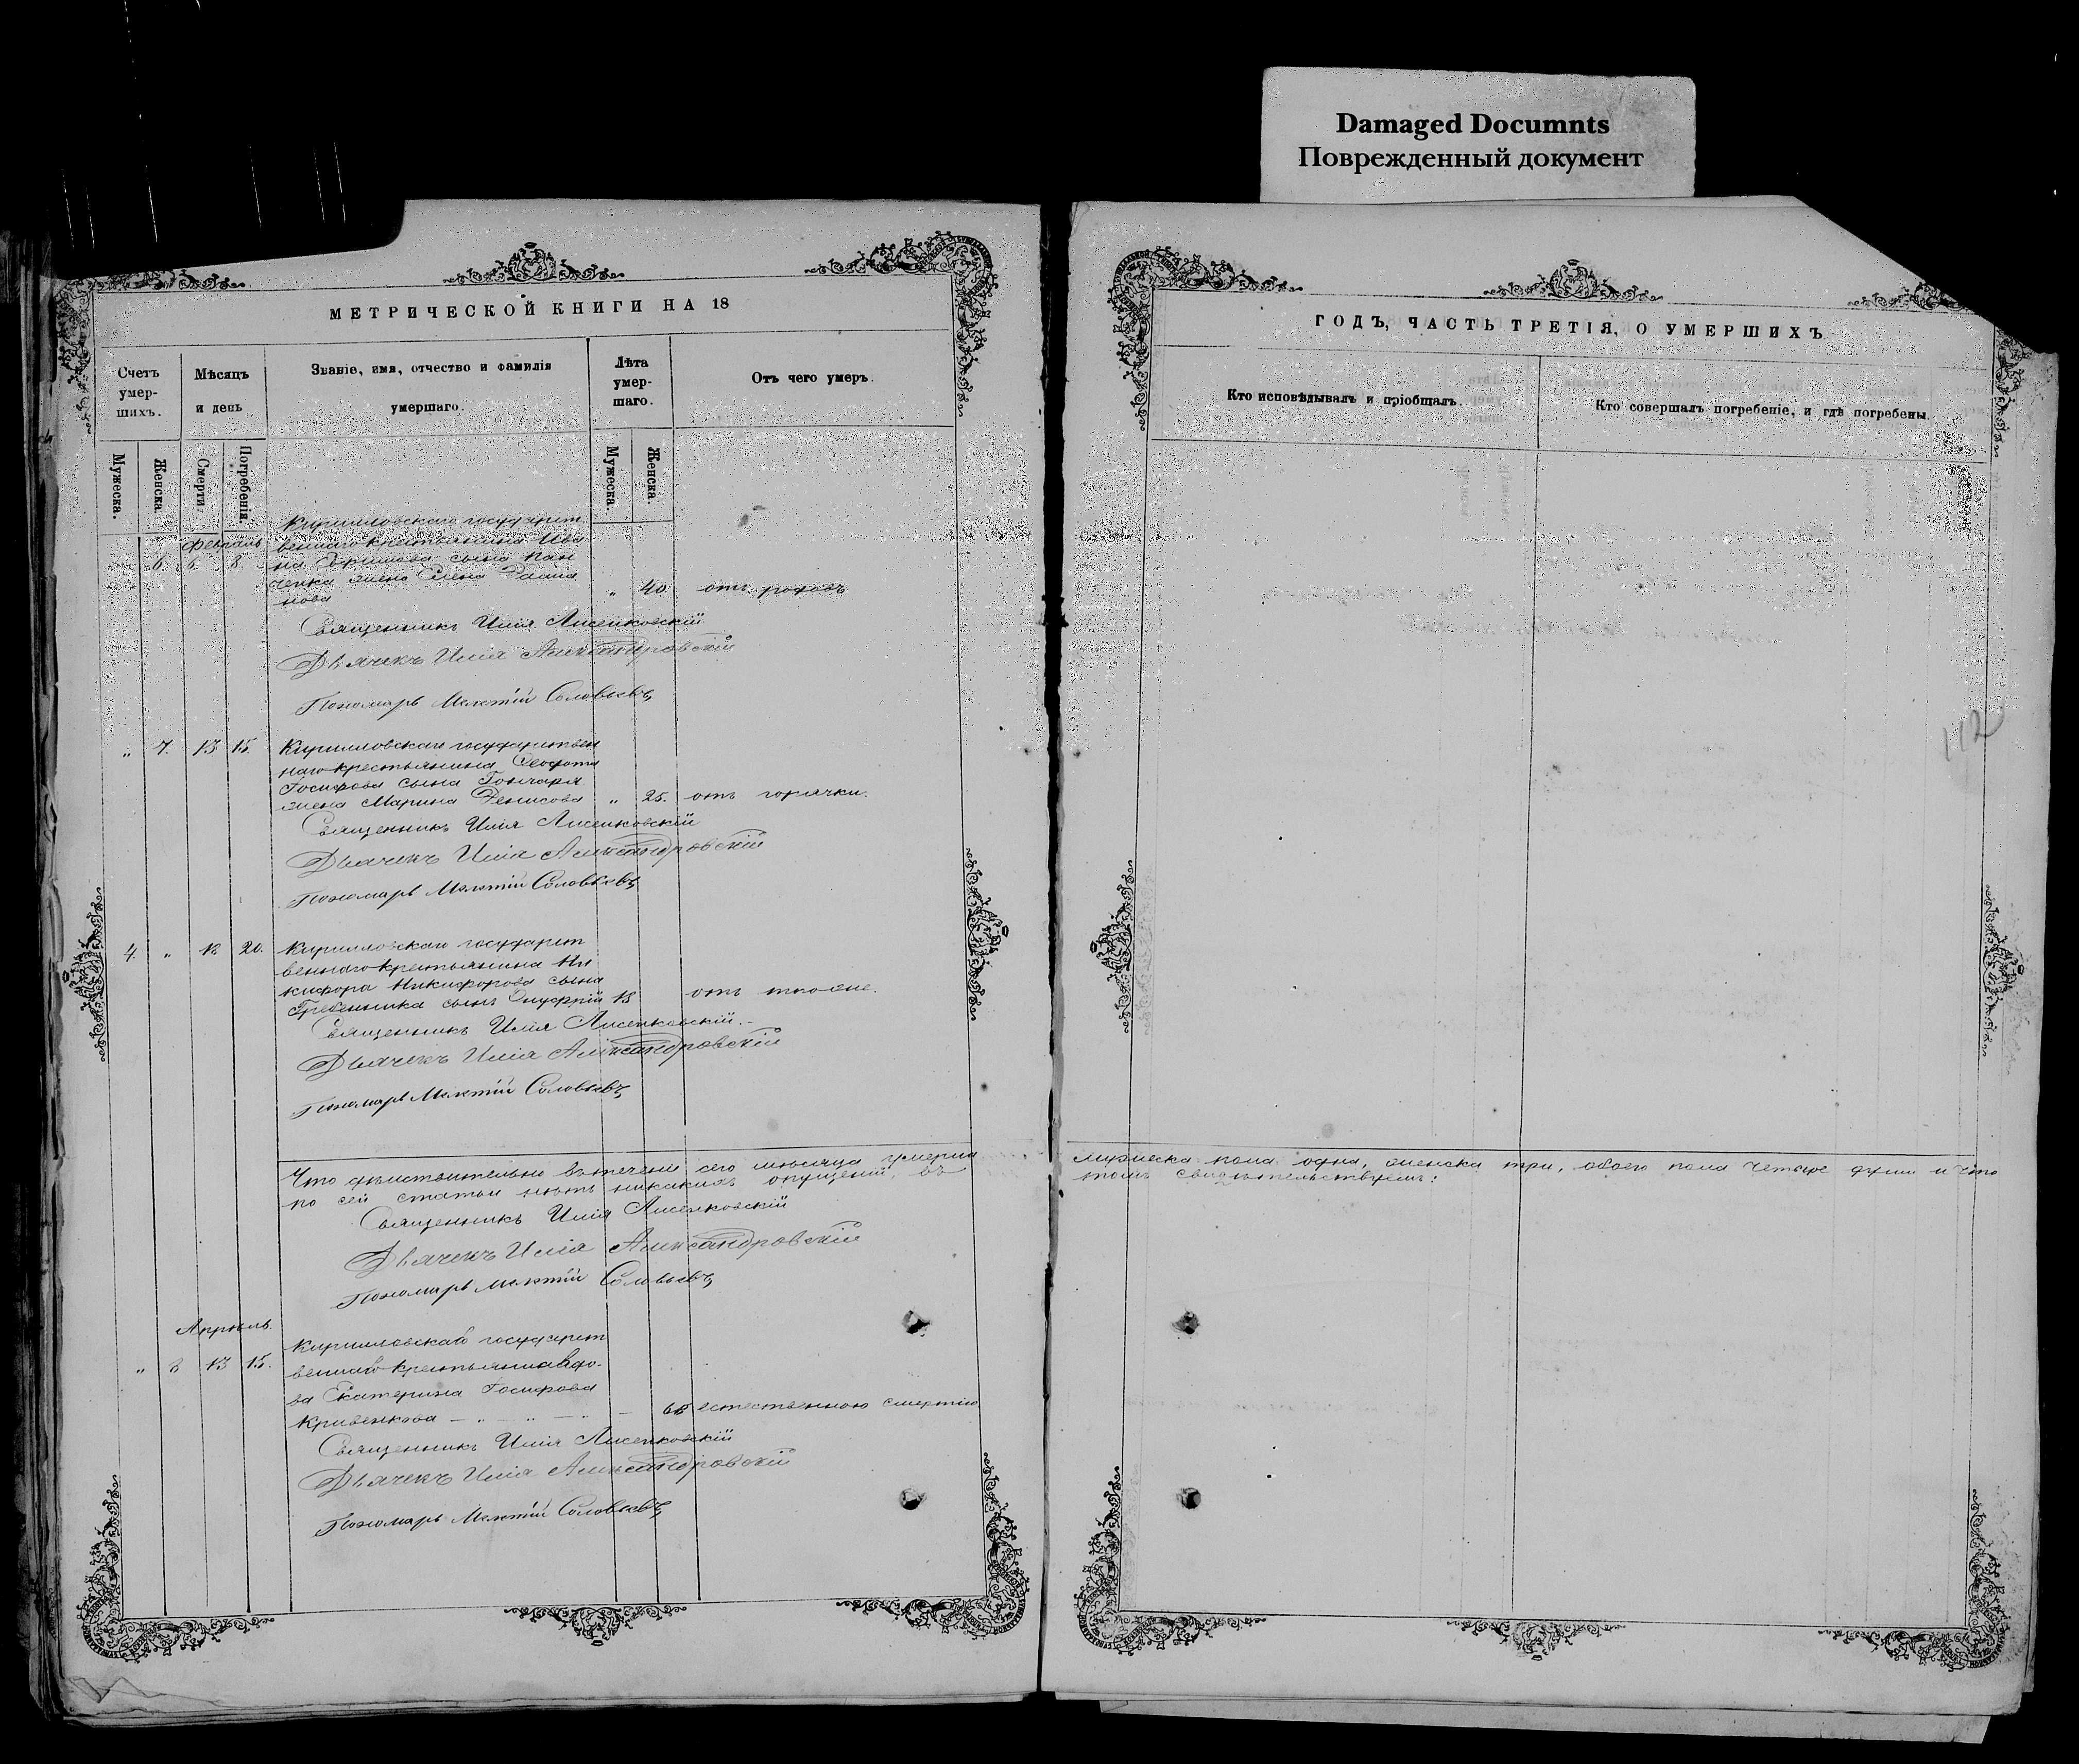 Damaged Documnts
Поврежденный документ
МЕТРИЧЕСКОЙ КНИГИ НА 18
Счетъ умер-шихъ.
Мѣсяцъ и день
Званіе, имя, отчество и фамилія умершаго.
Лѣта умер-шаго.
Отъ чего умеръ.
Мужеска.
Женска.
Смерти
Погребенія.
Мужеска.
Женска.
Февраль
Кирилловскаго государст
веннаго крестьянина Ива
6. 6. 8. на Ефимова сына Пан
ченка жена Елена
нова „ 40 отъ родовъ
Священникъ Илія Лисенковскій
Дьячекъ Илія Александровскій
Пономарь Мелетій Соловьевъ
„ 7. 13 15. Кирилловскаго государствен
наго крестьянина Ѳеофана
Іосифова сына Гончаря
жена Марина Денисова „ 25. отъ горячки.
Священникъ Илія Лисенковскій
Дьячекъ Илія Александровскій
Пономарь Мелетій Соловьевъ
4. „ 18 20. Кирилловскаго государст
веннаго крестьянина Ни
кифора Никифорова сына
Гребенника сынъ Онуфрій 18 отъ
Священникъ Илія Лисенковскій.
Дьячекъ Илія Александровскій
Пономарь Мелетій Соловьевъ
Что дѣйствительно въ теченіи сего мѣсяца умерли
по сей статьи нѣтъ никакихъ опущеній, въ
Священникъ Илія Лисенковскій
Дьячекъ Илія Александровскій
Пономарь Мелетій Соловьевъ
Апрѣль.
Кирилловскаго государст
„ 8 13 15. веннаго крестьянина вдо-
ва Екатерина Іосифова
Кривенкова естественною смертію
Священникъ Илія Лисенковскій
Дьячекъ Илія Александровскій
Пономарь Мелетій Соловьевъ
ГОДЪ, ЧАСТЬ ТРЕТІЯ, О УМЕРШИХЪ.
Кто исповѣдывалъ и пріобщалъ.
Кто совершалъ погребеніе, и гдѣ погребены.
112
мужеска пола одна, женска три, обоего пола четыре души и что
томъ свидѣтельствуемъ: